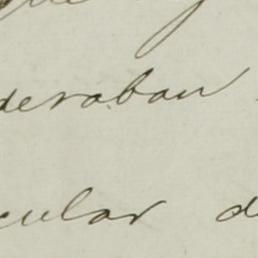 deraban
cular d